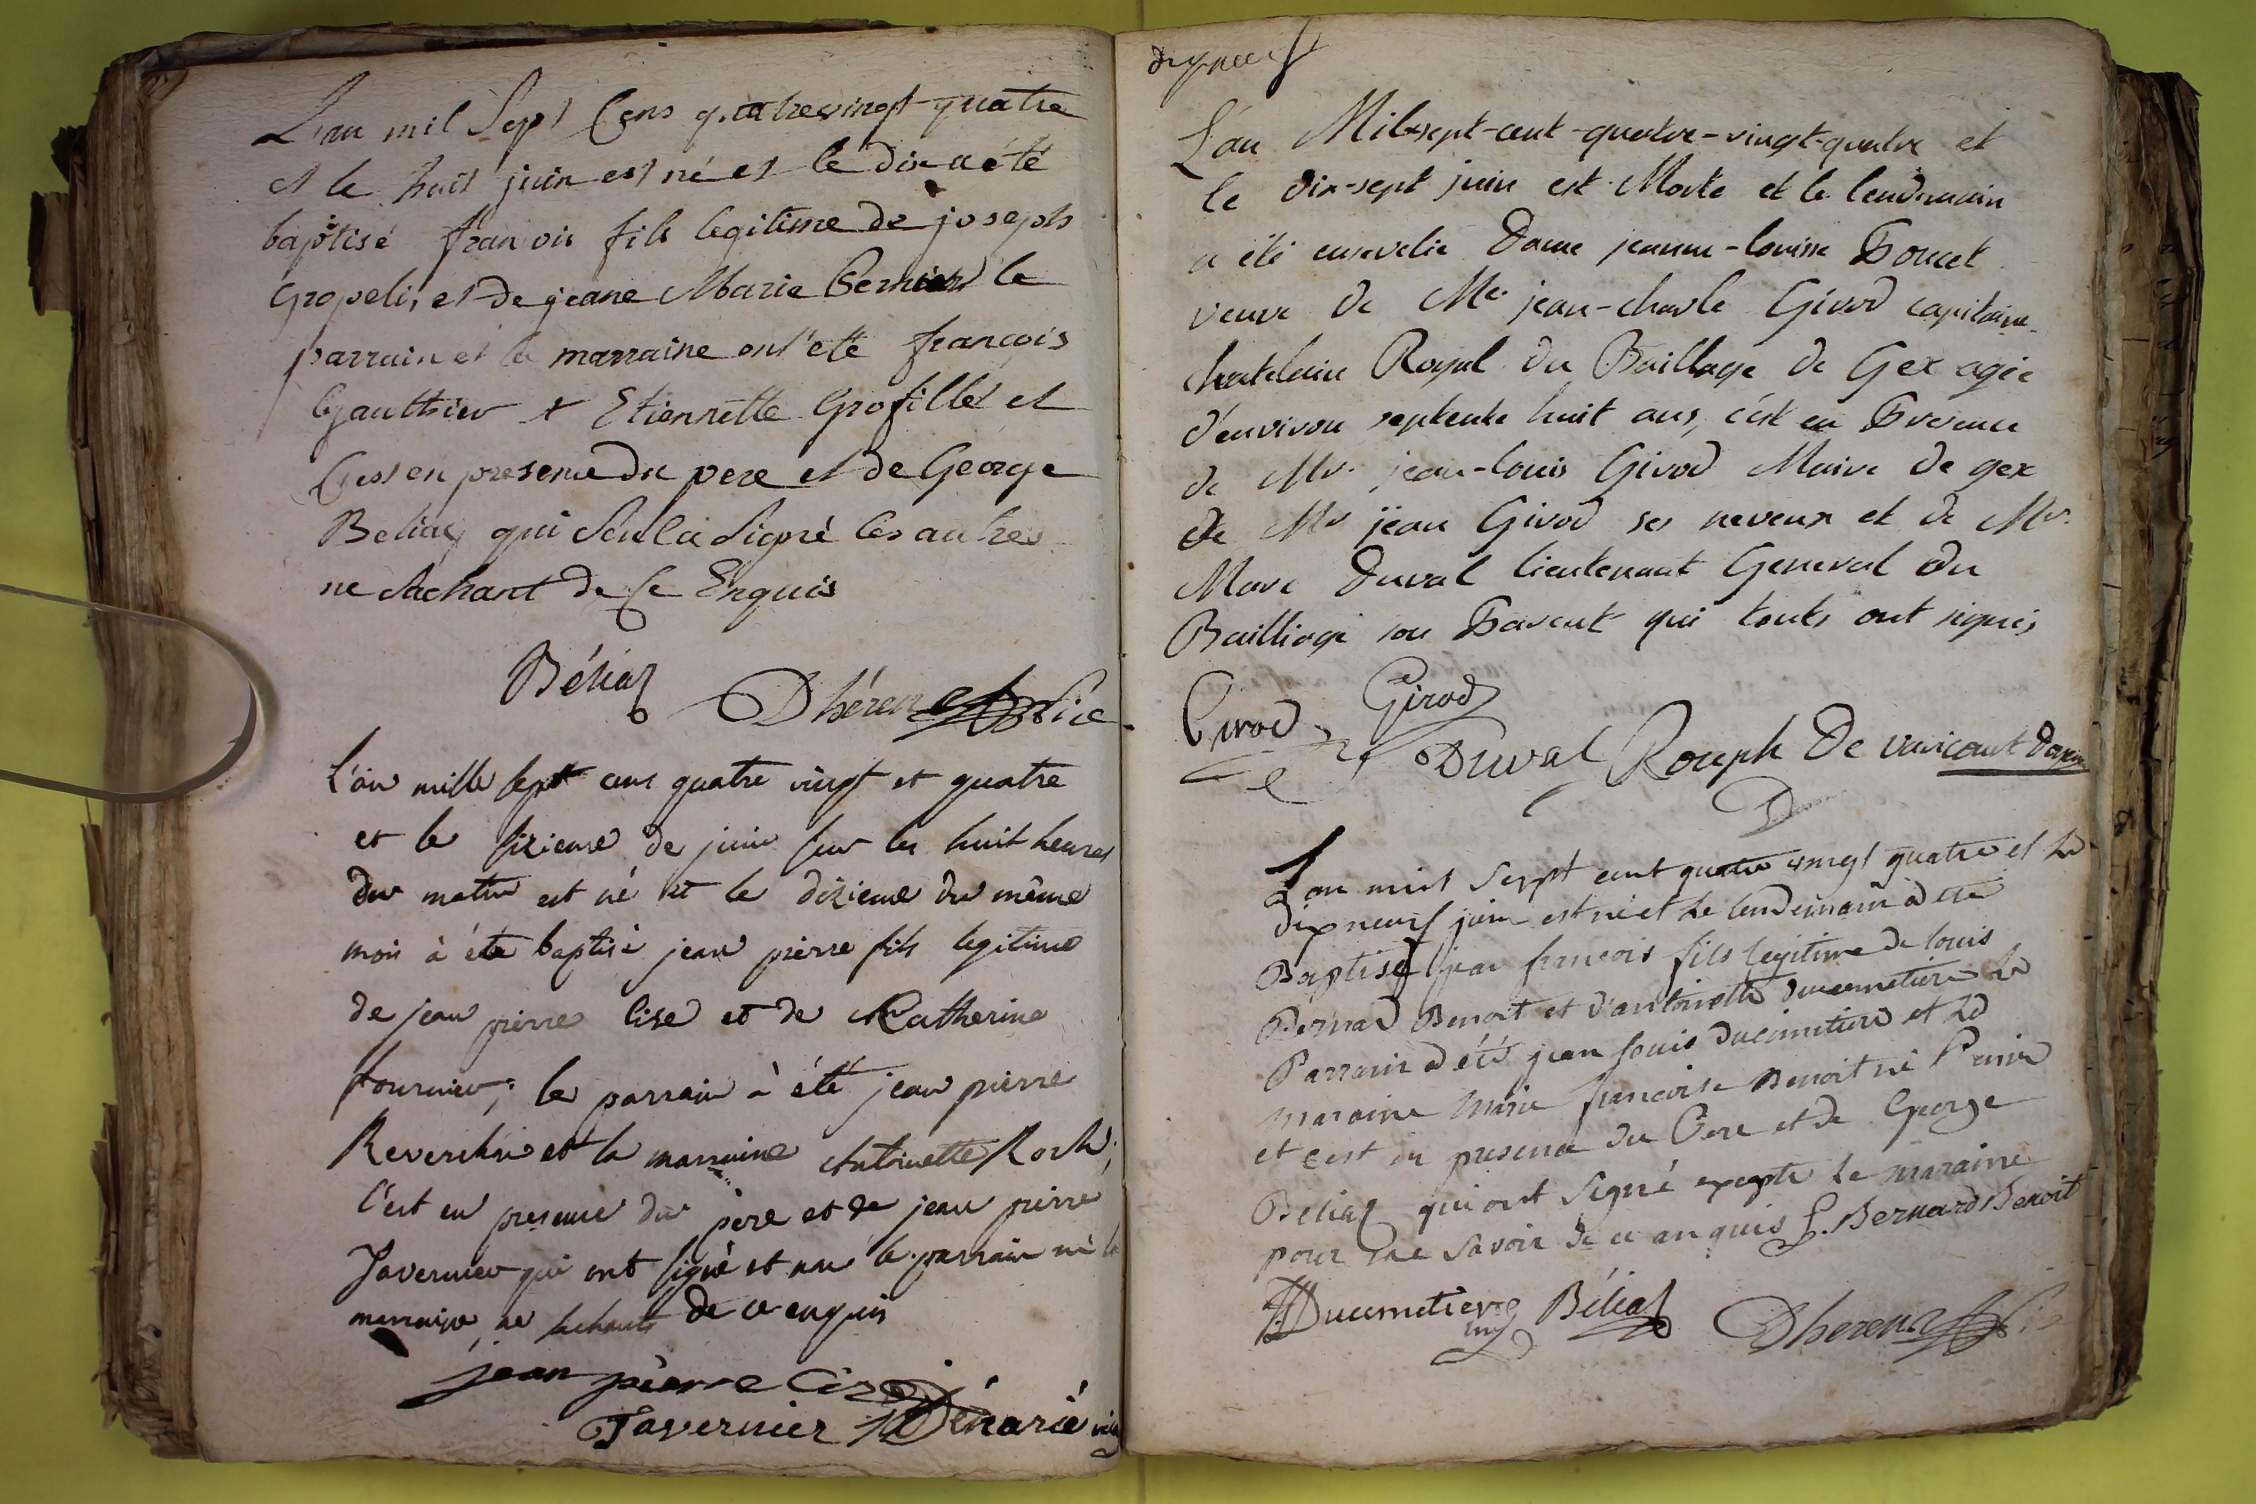 L'an mil Sept Cens quatrevingt quatre
et le huit juin est né et le dix a été
baptisé françois fils legitime de joseph
Gropeli, et de jeane Marie le
parrain et la marraine ont été françois
Gauthier et Etiennette Grofillet et
C'est en presence du pere et de George
Béliaz qui Seul a Signé les autres
ne Sachant de Ce Enquis
Béliaz Dhérens Vice
L'an mille sept cens quatre vingt et quatre
et le sizieme de juin sur les huit heures
du matin est né et le dizieme du même
mois à été baptisé jean pierre fils legitime
de jean pierre Cise et de Katherine
fournier; le parrain à été jean pierre
Reverchon et la marraine Antoinette Roch;
C'est en presence du père et de jean pierre
Tavernier qui ont signé et non le parrain ni la
marraine ne sachants de ce enquis
jean pierre Cise
Tavernier Dénarié vic
dixneuf
L'an Mil-sept-cent-quatre-vingt-quatre et
le dix-sept juin est Morte et le lendemain
a été ensevelie Dame jeanne-louise Poncet
veuve de Me jean-charle Girod capitaine
chatelain Royal du Baillage de Gex agée
d'environ septente huit ans, c'est en Presence
de Mr. jean-louis Girod Maire de gex
de Mr jean Girod ses neveux et de Mr.
Marc Duval lieutenant General du
Bailliage son Parent qui touts ont signés
Girod Girod
Duval Rouph De varicourt Doyen
L'an mil Sept cent quatre vingt quatre et le
dixneuf juin est né et le lendemain à été
Baptisé jean françois fils legitime de louis
Bernard Benoit et d'antoinette ducimetiere le
Parrain à été jean louis Ducimetiere et la
maraine Marie françoise Benoit né
et c'est en presence du Pere et de George
Béliaz qui ont Signé exepté la maraine
pour ne Savoir de ce anquis L. Bernard Benoit
Ducimetiere Béliaz Dherens